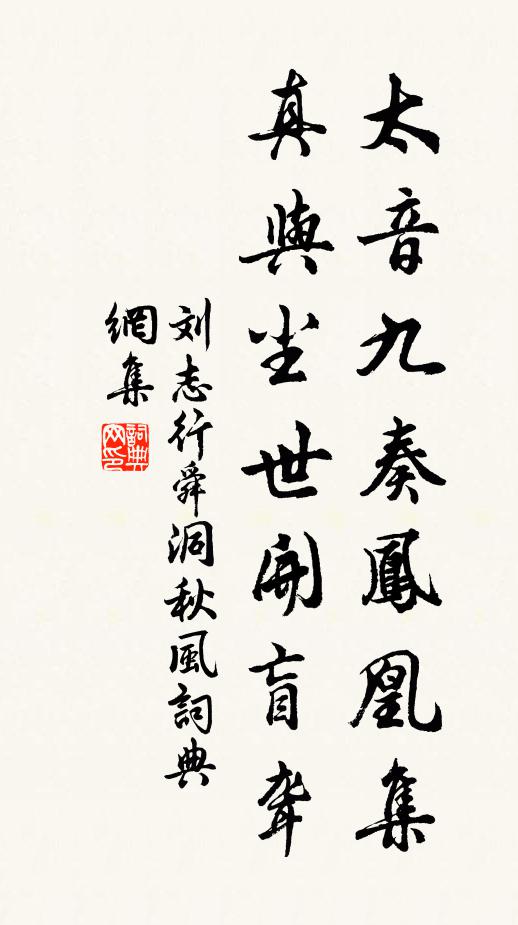 太音九奏鳳凰集
真與尘世開盲聋
刘志行舜洞秋風詞典
網集
詞典
网印